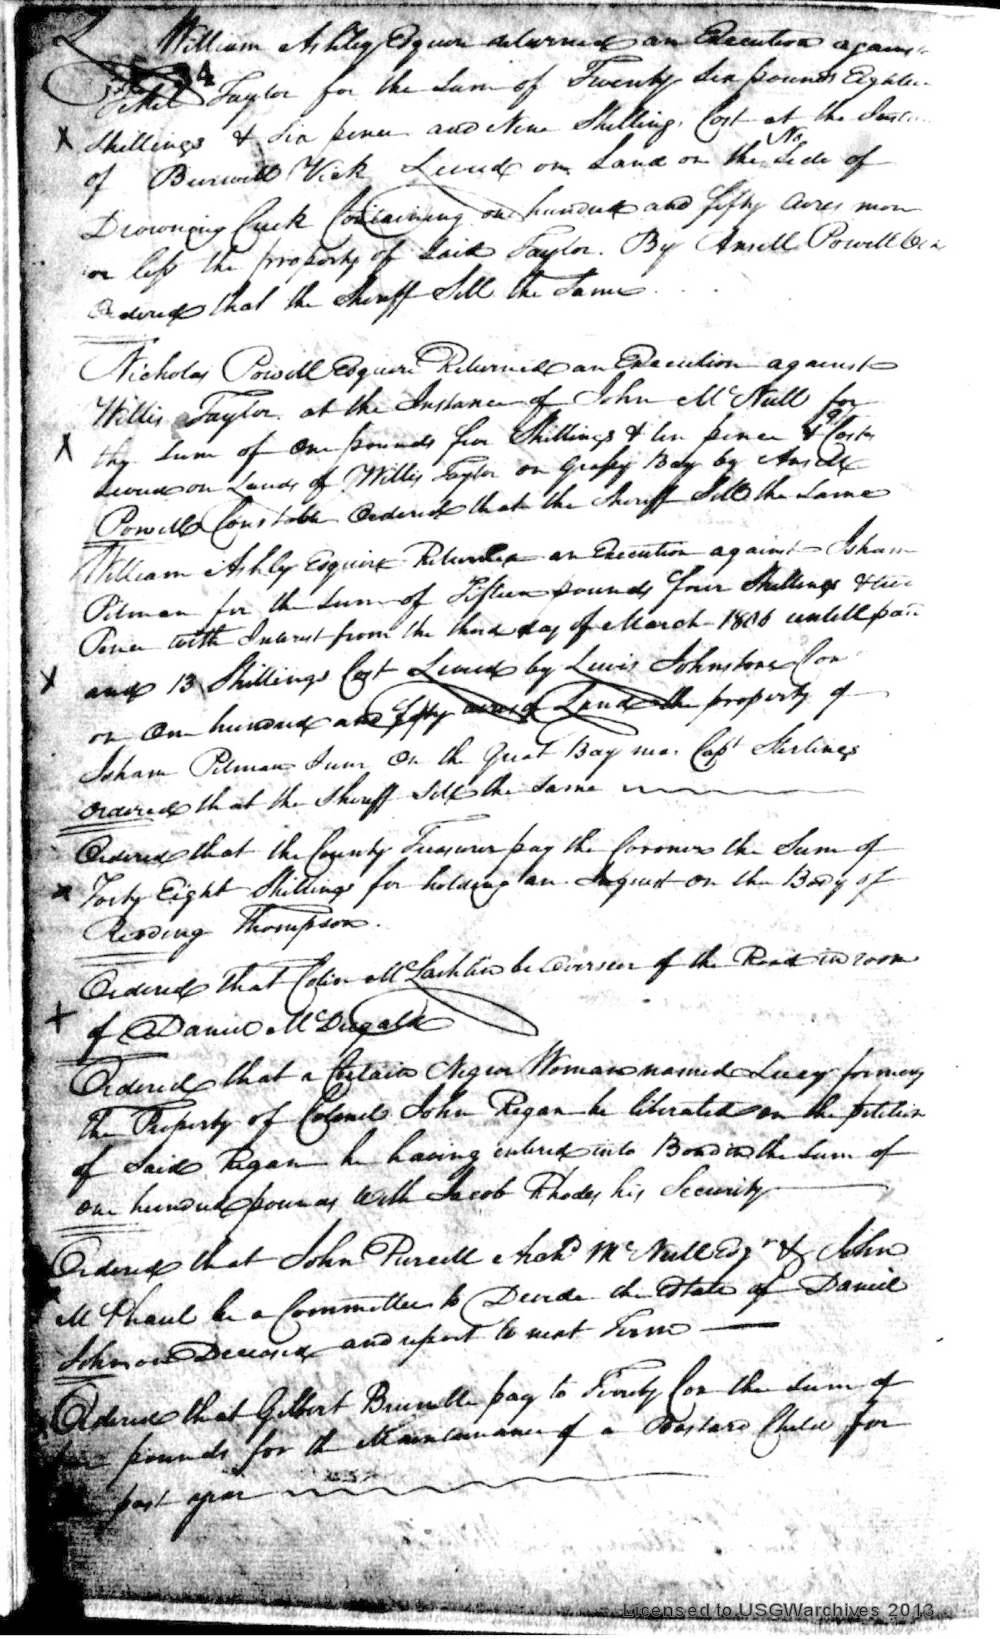 William Ashley Esquire returned an Execution against
34
Taylor for the Sum of Twenty Six pounds Eighteen
Shillings & Six pence and Nine Shillings Cost at the
of Burwell Vick Levied on Land on the No. Side of
Drowning Creek Containing one hundred and fifty acres more
or less the property of said Taylor. By Ansell Powell
Ordered that the Sheriff Sell the Same
Nicholas Powell Esquire Returned an Execution against
Willis Taylor at the Instance of John McNeill for
the Sum of One pounds five Shillings & ten pence & Costs
Levied on Lands of Willis Taylor on Grassy Bay by Ansell
Powell Constable Ordered that the Sheriff Sell the Same
William Ashley Esquire Returned an Execution against Isham
Pitman for the Sum of Fifteen pounds four Shillings &
Pence with Interest from the third day of March 1806 untill paid
and 13 Shillings Cost Levied by Lewis Johnstone Con
on One hundred and fifty acres of Land the property of
Isham Pitman Junr On the Great Bay near Capt Sterlings
Ordered that the Sheriff Sell the Same
Ordered that the County Treasurer pay the Coroner the Sum of
Forty Eight Shillings for holding an Inquest on the Body of
Reading Thompson.
Ordered that Colin McLachlin be Overseer of the Road in room
of Daniel McDugald
Ordered that a Certain Negroe Woman named Lucy formerly
the Property of Colonel John Regan be liberated on the petition
of Said Regan he having entered into Bond in the Sum of
one hundred pounds with Jacob Rhodes his Security
Ordered that John Purcell Archd McNeill Esqrs & John
McPhaul be a Committee to Devide the Estate of Daniel
Johnson Deceased and report to next Term
Ordered that Gilbert pay to the Sum of
pounds for the Maintainance of a Bastard Child for
past year
Licensed to USGWarchives 2013